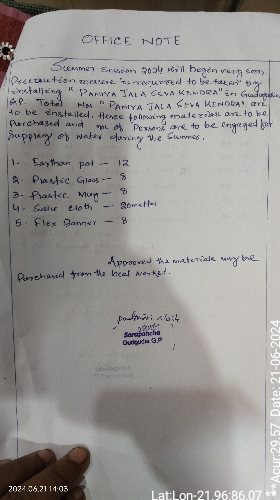 OFFICE NOTE
Summer Season 2024 will begin very soon
Precaution measure is required to be taken by
installing "PANIYA JALA SEVA KENDRA" in Gudugudia
GP. Total Nos "PANIYA JALA SEVA KENDRA" are
to be installed. Hence following materials are to be
Purchased and of Persons are to be engaged for
Supplay of water during the Summer.
1- Earthan pot - 12
2- Plastic Glass - 8
3- Plastic Mug - 8
4- cloth - 20 metter
5- Flex Banner - 8
Approved the materials may be
Purchased from the local market.
Sarapancha
Gudugudia G.P
2024.06.21 14:03
Lat:Lon-21.96:86.07
***Acur:29.57 Date: 21-06-2024